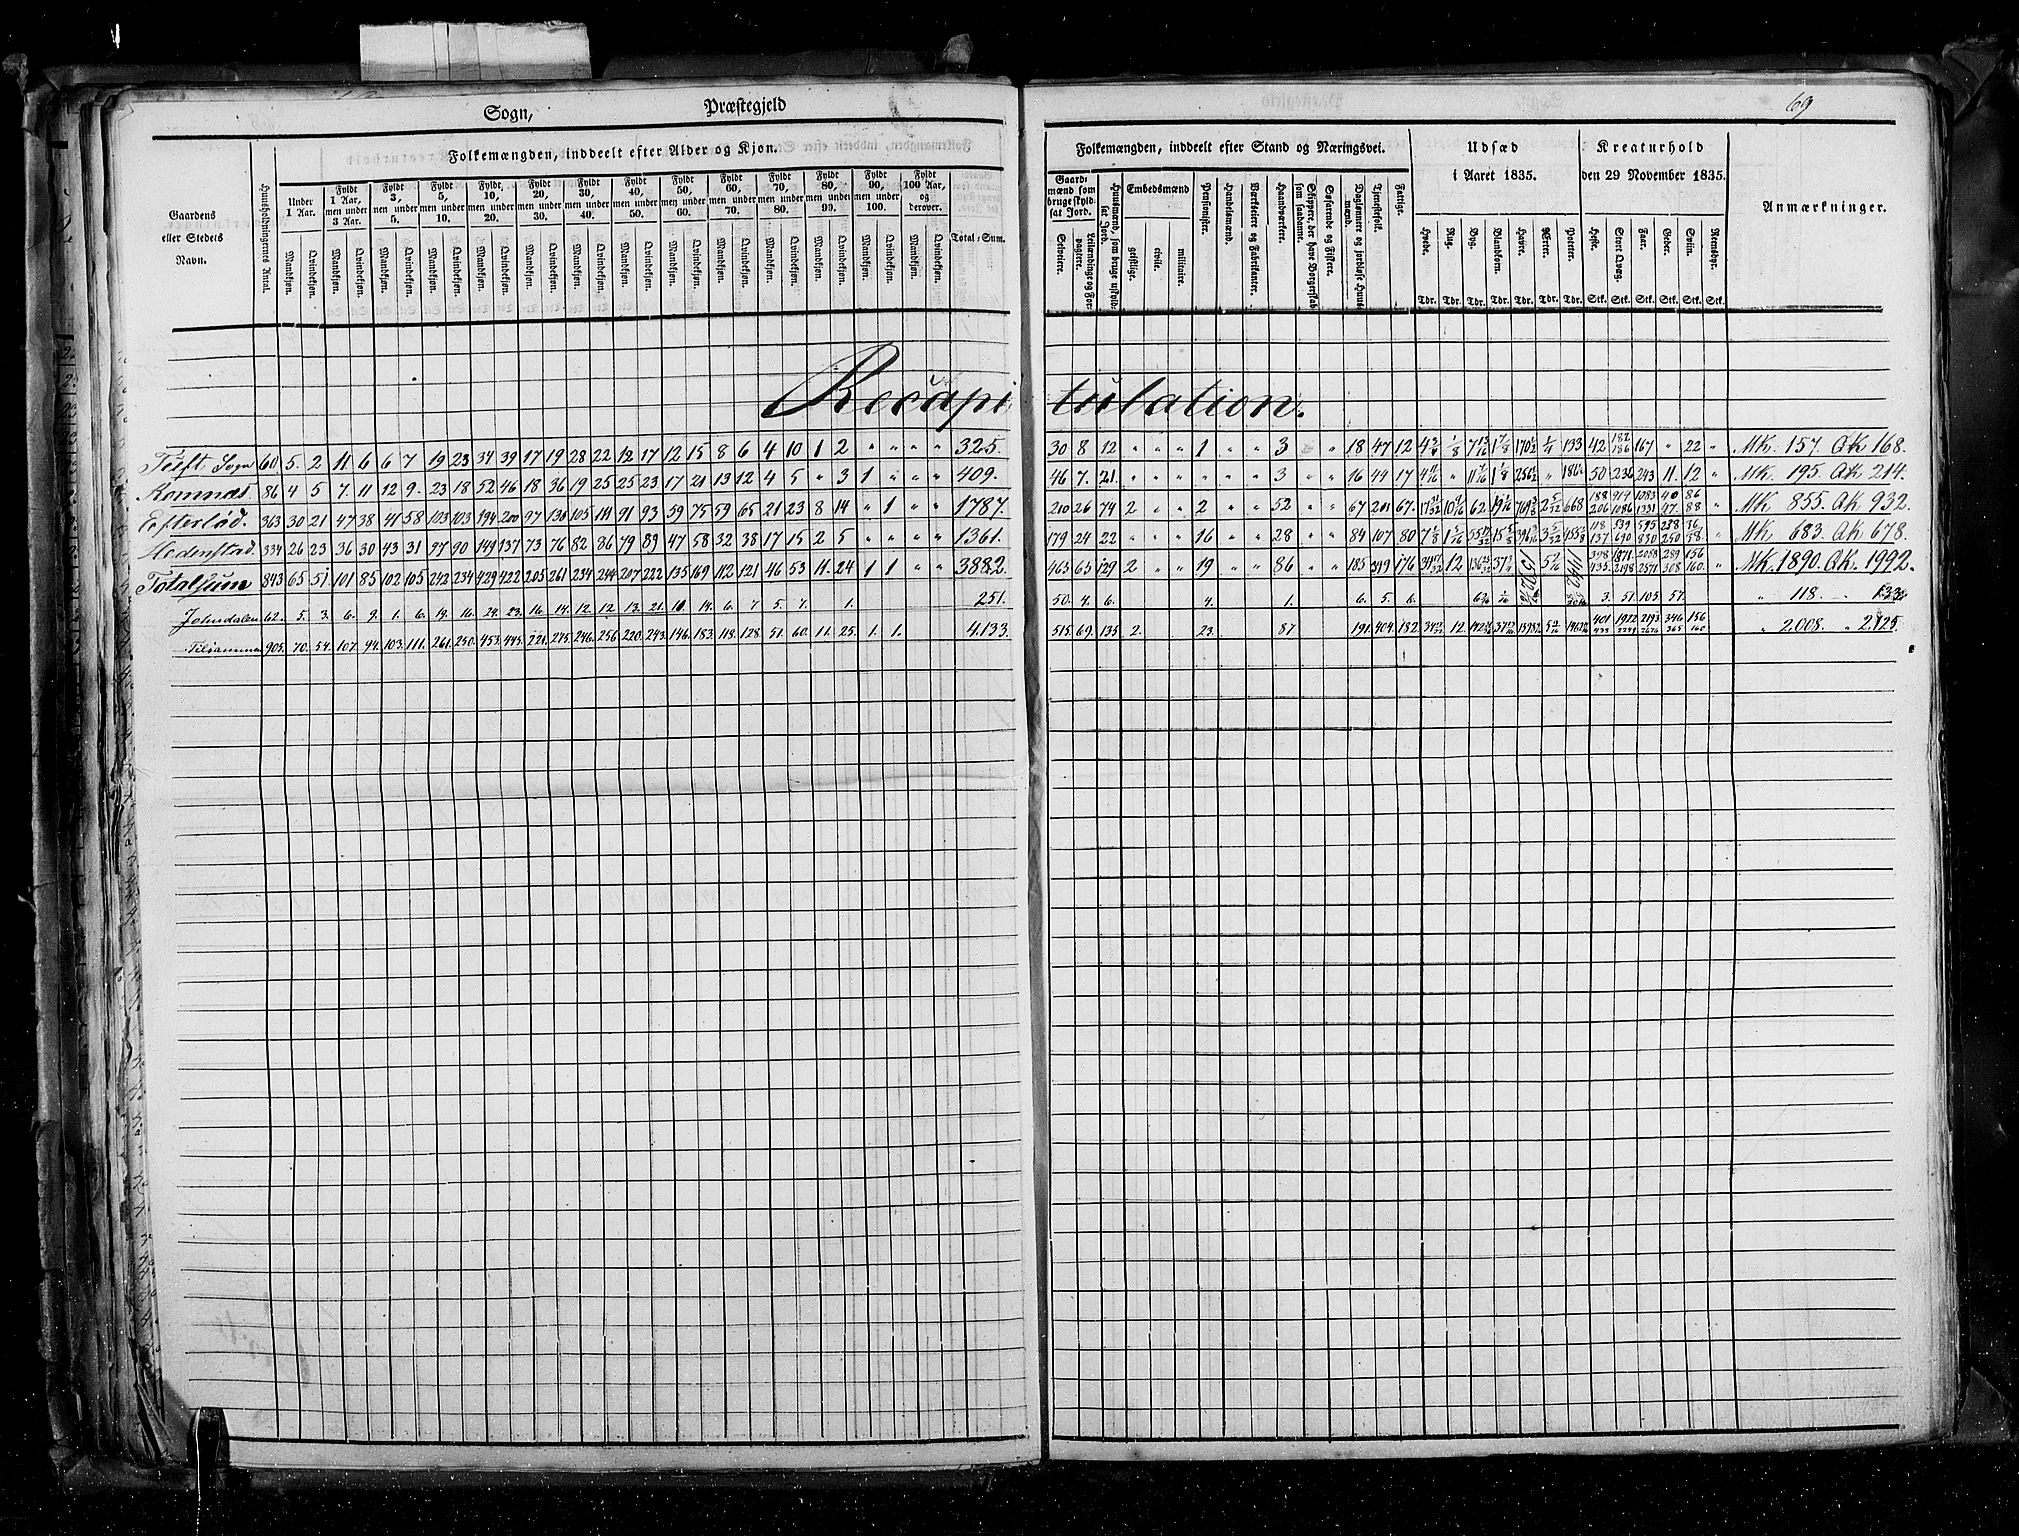 69
Sogn, Præstegjeld
Gaardens eller Stedets Navn.
Huusholdningernes Antal.
Folkemængden, inddeelt efter Alder og Kjøn.
Under 1 Aar.
Fyldt 1 Aar, men under 3 Aar.
Fyldt 3, men under 5.
Fyldt 5, men under 10.
Fyldt 10, men under 20.
Fyldt 20, men under 30.
Fyldt 30, men under 40.
Fyldt 40, men under 50.
Fyldt 50, men under 60.
Fyldt 60, men under 70.
Fyldt 70, men under 80.
Fyldt 80, men under 90.
Fyldt 90, men under 100.
Fyldt 100 Aar, og derover.
Mandkjøn. Qvindekjøn.
Total-Sum.
Folkemængden, inddeelt efter Stand og Næringsvei.
Gaardmænd som bruge skyldsat Jord.
Selveiere.
Leilændinge og Forpagtere.
Huusmænd, som bruge uskyldsat Jord.
Embedsmænd
geistlige.
civile.
militaire.
Pensionister.
Handelsmænd.
Værkseiere og Fabrikanter.
Haandværkere.
Skippere, der have Borgerskab som saadanne.
Søfarende og Fiskere.
Daglønnere og jordløse Huusmænd.
Tjenestefolk.
Fattige.
Udsæd i Aaret 1835.
Hvede. Rug. Byg. Blandkorn. Havre. Ærter. Poteter.
Tdr. Tdr. Tdr. Tdr. Tdr. Tdr. Tdr.
Kreaturhold den 29 November 1835.
Heste. Stort Qvæg. Faar. Geder. Sviin. Reensdyr.
Stk. Stk. Stk. Stk. Stk. Stk.
Anmærkninger.
Recapitulation.
Tuft Sogn 60 5 2 11 6 6 7 19 23 34 39 17 19 28 22 12 17 12 15 8 6 4 10 1 2 " " " " 325. 30 8 12 " " " 1 " " 3 " " 18 47 12 133 42 182 186 167 " 22 " Mk. 157. Qk 168.
Komnæs 86 4 5 7 11 12 9 23 18 52 46 18 36 19 25 25 23 17 21 13 12 4 5 " 3 1 " " " 409. 46 7 21 " " " " " " 3 " " 16 49 17 50 236 243 11 12 " Mk. 195. Qk 214.
Efterlød. 363 30 21 47 38 41 58 103 103 194 200 97 130 105 111 91 93 59 75 59 65 21 23 8 14 " 1 " " 1787. 210 26 74 2 " " 2 " " 52 " " 67 201 67. 62 668 188 206 914 1086 1083 1331 40 47 86 88 " Mk. 855. Qk 932.
Hedenstad. 334 26 23 36 30 43 31 97 90 149 137 73 76 82 86 79 89 47 58 32 38 17 15 2 5 " " " " 1361. 179 24 22 " " " 16 " " 28 " " 84 107 80 118 137 539 690 595 830 238 250 36 38 " Mk. 683. Qk 678.
Totalsum 843 65 51 101 85 102 105 242 234 429 422 205 261 234 244 207 222 135 169 112 121 46 53 11 24 1 1 " " 3882. 463 65 129 2 " " 19 " " 86 " " 185 399 176 12 398 435 1871 2198 2058 2571 289 308 156 160 " Mk. 1890. Qk. 1992.
Johnsdalen 62. 5. 3. 6. 9. 1. 6. 19. 16. 24. 23. 16. 14. 12. 12. 13. 21. 11. 14. 6. 7. 5. 7. 1. 251. 50. 4. 6. 4. 1. 6. 5. 6. 3. 51. 105 57. " 118. " 133
Tilsammen 905. 70. 54. 107. 94. 103. 111. 261. 250. 453. 445. 221. 275. 246. 256 220. 243. 146. 183. 118. 128. 51. 60. 11. 25. 1. 1. 4.133. 515. 69. 135. 2. 23. 87 191 404. 182. 12. 401 1922 346 156 " 2.008. " 2.125.